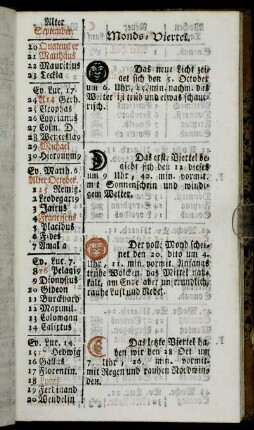 Alter
September.
20 Quatember
21 Matthäus
22 Mauritius
23 Tecla
Ev. Luc. 17.
24 Gerh.
25 Cleophas
26 Cyprianus
27 Cosm. D.
28 Wenceslaý
29 Michael
30 Hieronymo
Ev. Matth. 6.
Alter October.
1 15 Remig.
2 Leodegari9
3 Jairus
4 Franciscus
5 Placidus
6 Fides
7 Amalia
Ev. Luc. 7.
8 Pelagi9
9 Dionysius
10 Gideon
11 Burckhard
12 Maximil.
13 Colomann
14 Calixtus
Ev. Luc. 14.
15 17 Hedwig
16 Gallus
17 Florentin.
18 Lucas
19 Ferdinand
20 Wendelin
Monds-Viertel.
Das neue Licht zei-
get sich den 5. October
um 6. Uhr, 25. min. nachm. das
Wetter ist trüb und etwas schau-
risch.
Das erste Viertel be-
gibt sich den 12 dieses
um 9 Uhr, 40. min. vormit.
mit Sonnenschein und windi-
gem Wetter.
Der voll: Mond schei-
net den 20. dito um 4.
Uhr, 11. min. vormit. Anfangs
trübe Wolcken, das Mittel naß-
kalt, am Ende aber unfreundlich,
rauhe Luft und Nebel.
Das letzte Viertel ha-
ben wir den 28 Oct. um
7. Uhr, 26. min. vormit.
mit Regen und rauhen Nordwin-
den.